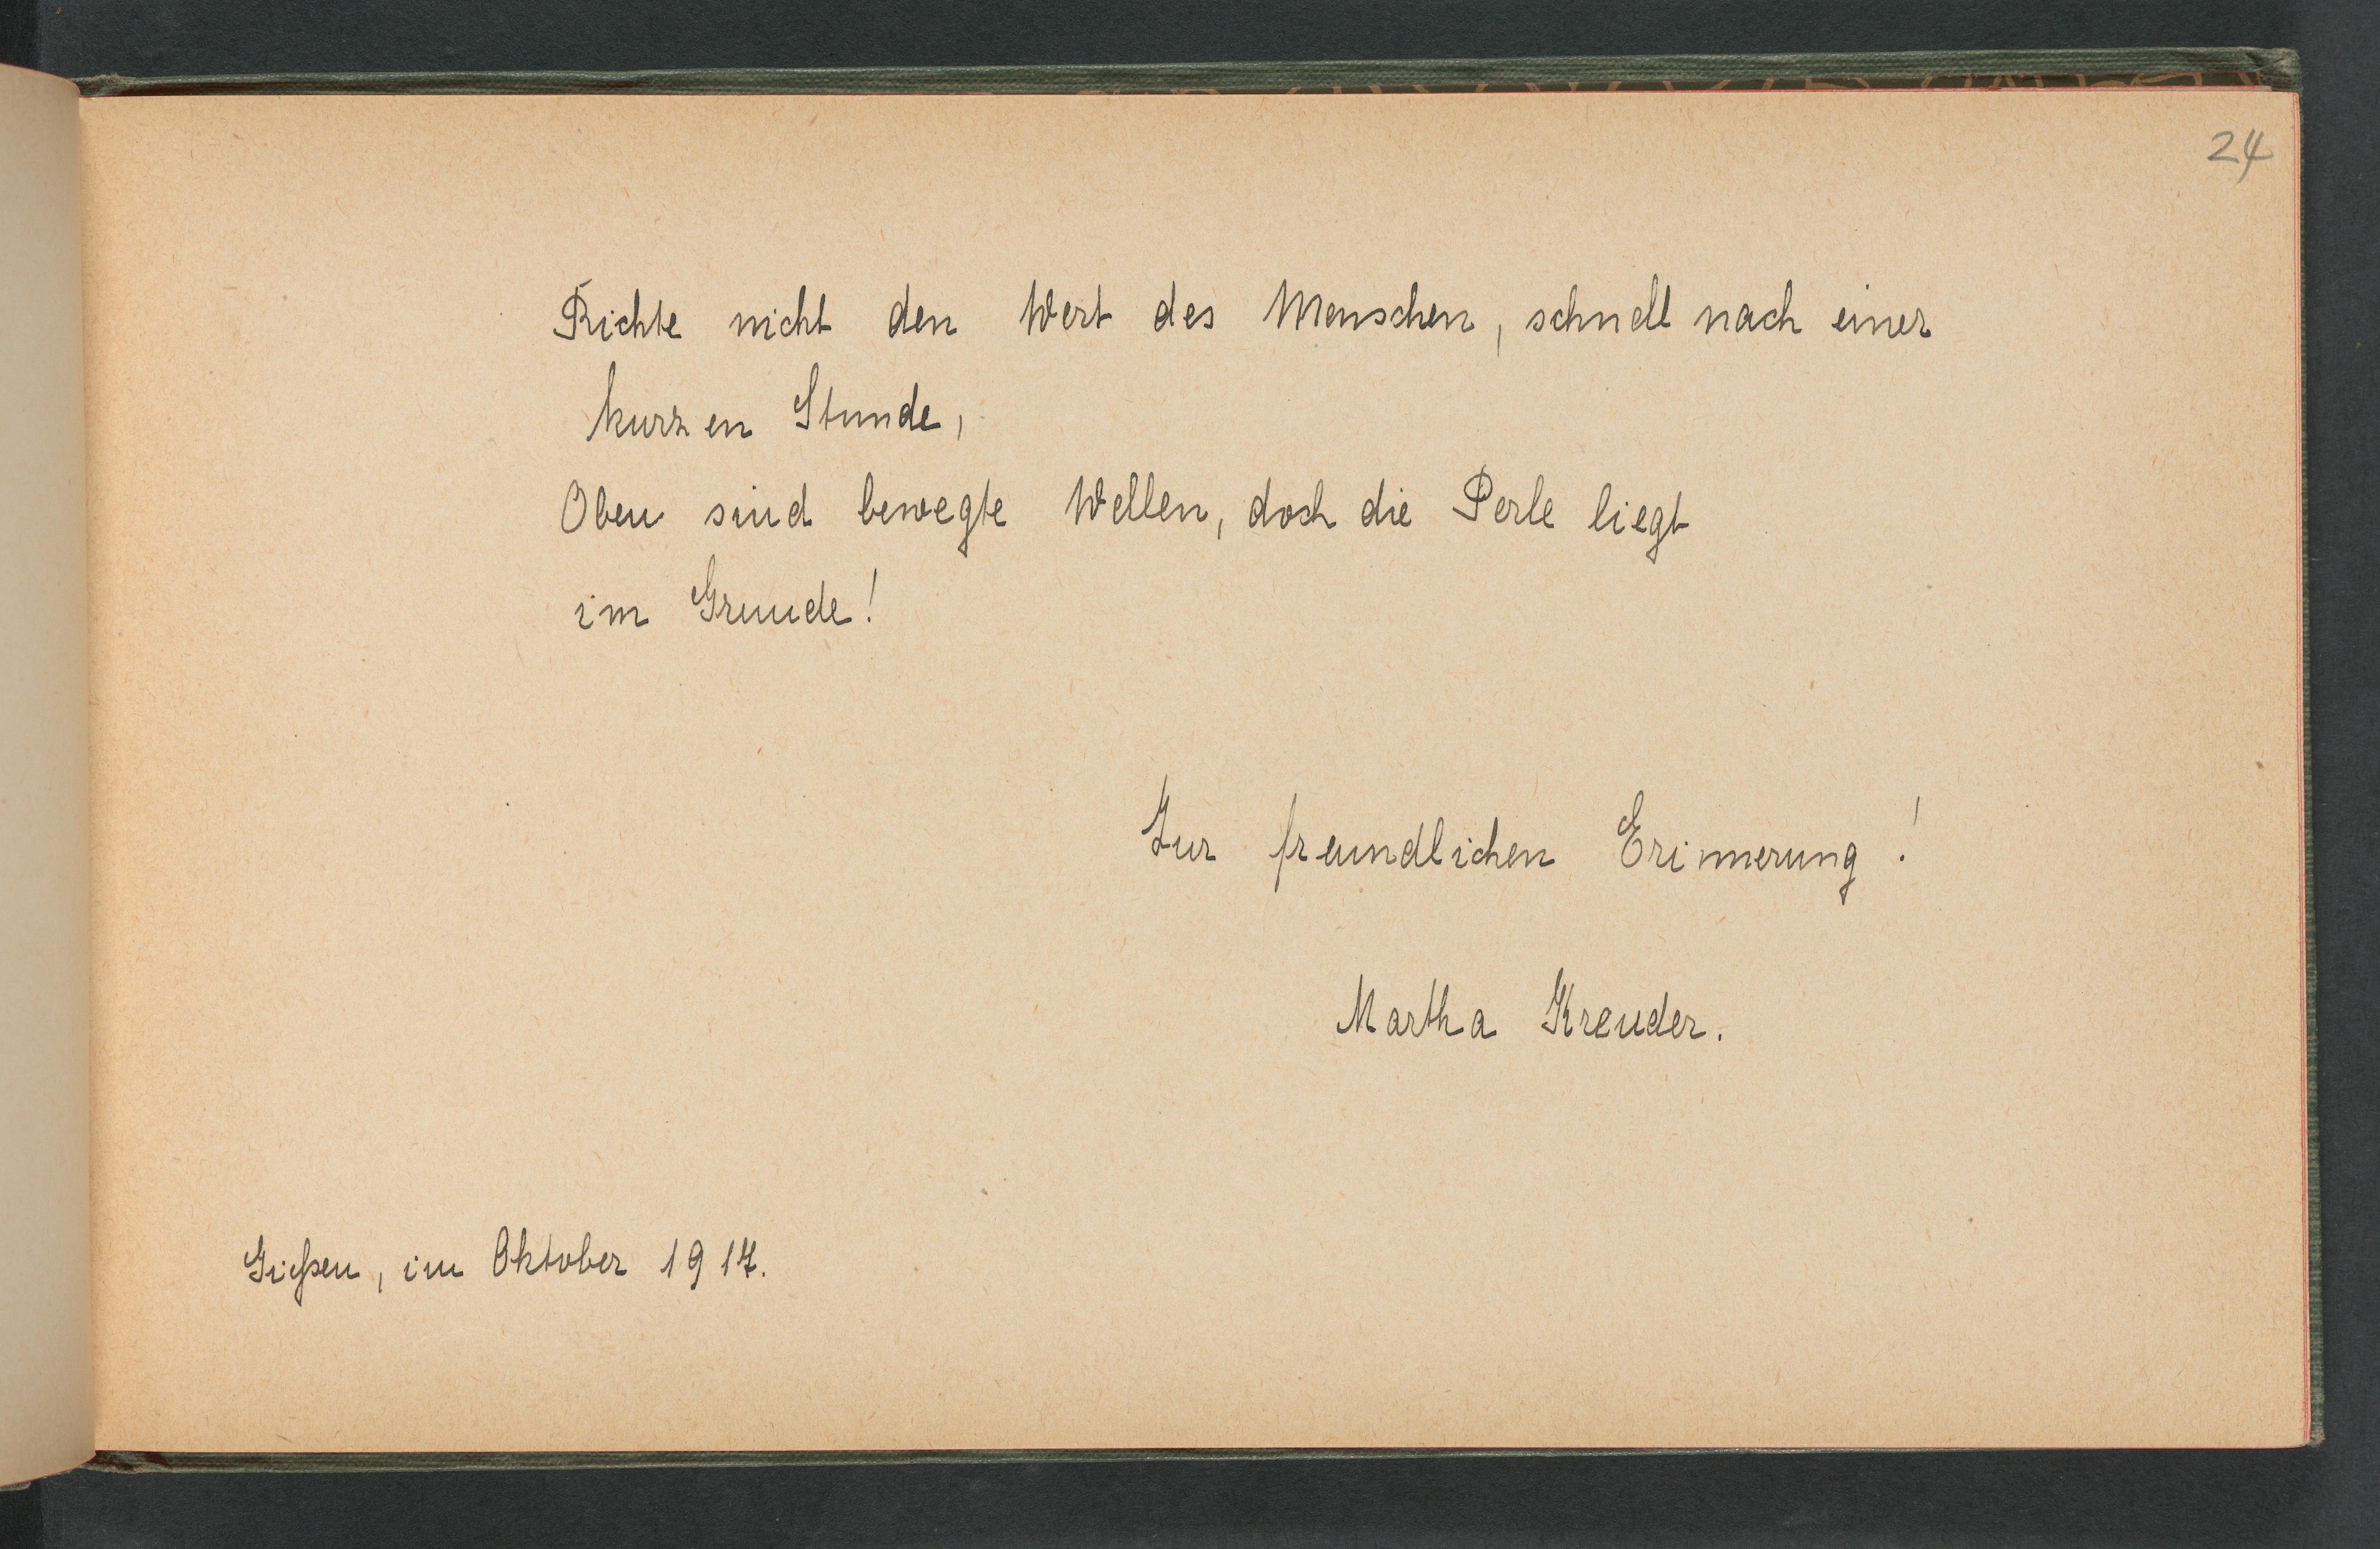 24
Richte nicht den Wert des Menschen, schnell nach einer
kurzen Stunde,
Oben sind bewegte Wellen, doch die Perle liegt
im Grunde!
Zur freundlichen Erinnerung!
Martha Kreuder.
Gießen, im Oktober 1917.